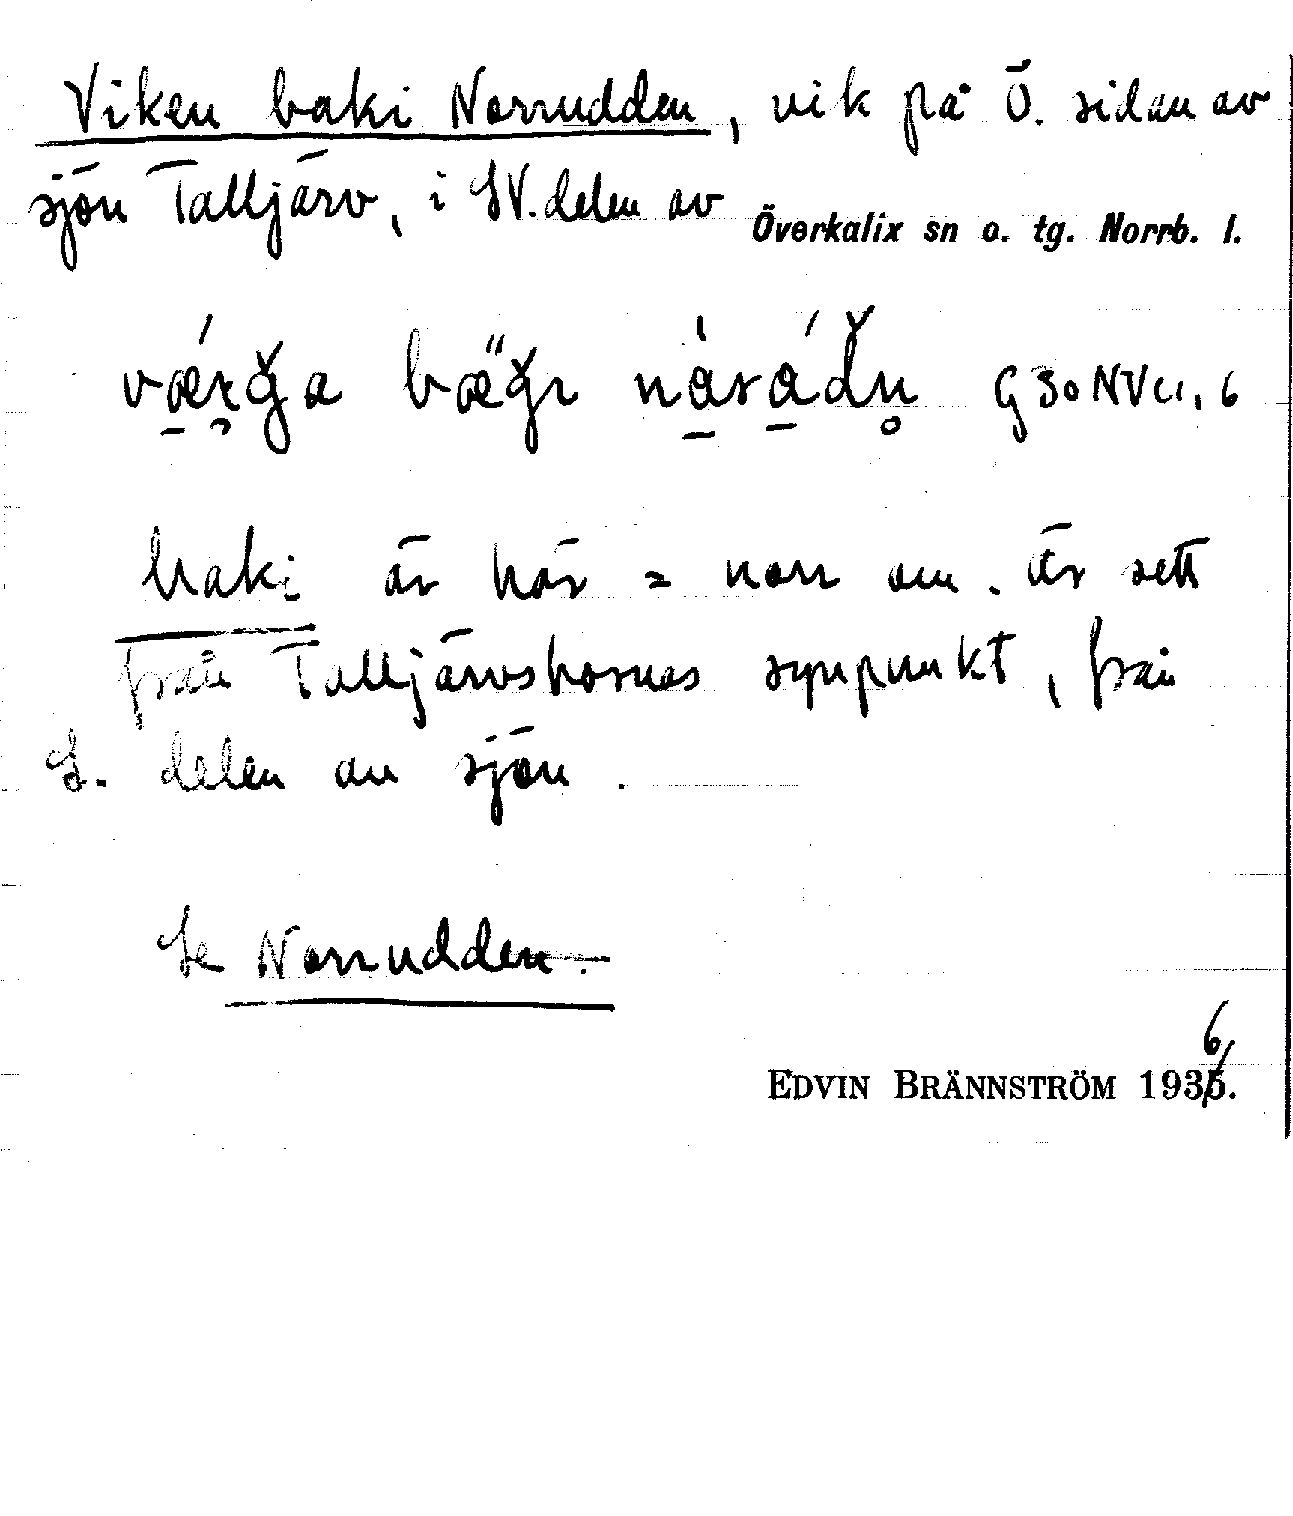 Viken baki Norrudden, vik på Ö. sidan av
sjön Talljärv, i SV. delen av Överkalix sn o. tg. Norrb. l.
G 30 NV u, 6
baki är här = norr om. Är sett
från Talljärvsbornas synpunkt, från
S. delen av sjön.
Se Norrudden.
EDVIN BRÄNNSTRÖM 1936.